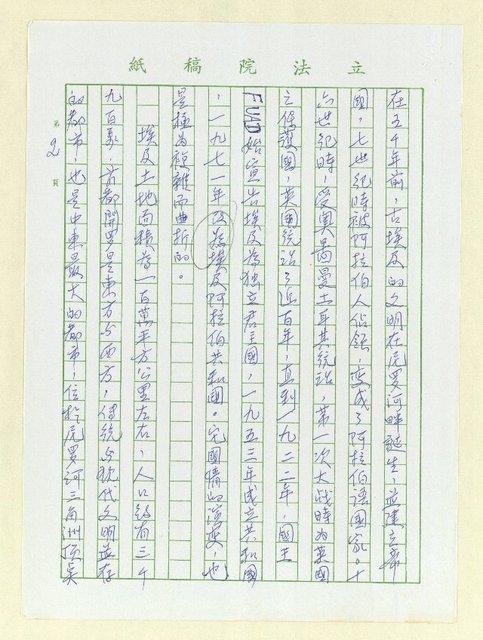 立法院稿紙
在五千年前，古埃及的文明在尼罗河畔誕生，並建立帝
國，七世紀時被阿拉伯人佔領，变成了阿拉伯語國家。十
六世紀時，受奧斯曼土耳其統治，第一次大战時为英國
之保護國，英國統治了近百年，直到一九二二年，國王
FUAD始宣告埃及為独立君主國，一九五三年成立共和國
，一九七一年改為埃及阿拉伯共和國。完國情的演变，也
是極为複雜而曲折的。
埃及土地面積為一百萬平方公里左右，人口約有三千
九百多，首都開罗是東方与西方，傳統与現代文明並存
的都市，也是中東最大的都市，位於尼罗河三角洲顶点
第2頁